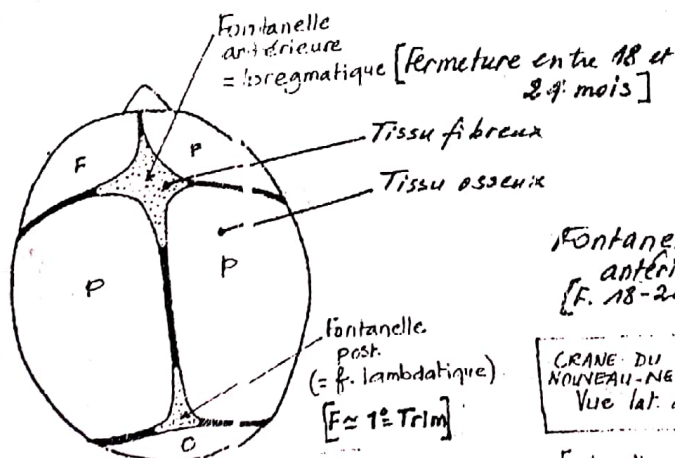 Fontanelle
antérieure
= bregmatique [Fermeture entre 18 et
24 mois]
Tissu fibreux
Tissu osseux
F
F
P
P
O
Fontanelle
post.
(= f. lambdatique)
[F ≃ 1º Trim]
[F. 18-2
CRANE DU
NOUVEAU-NE
Vue lat.